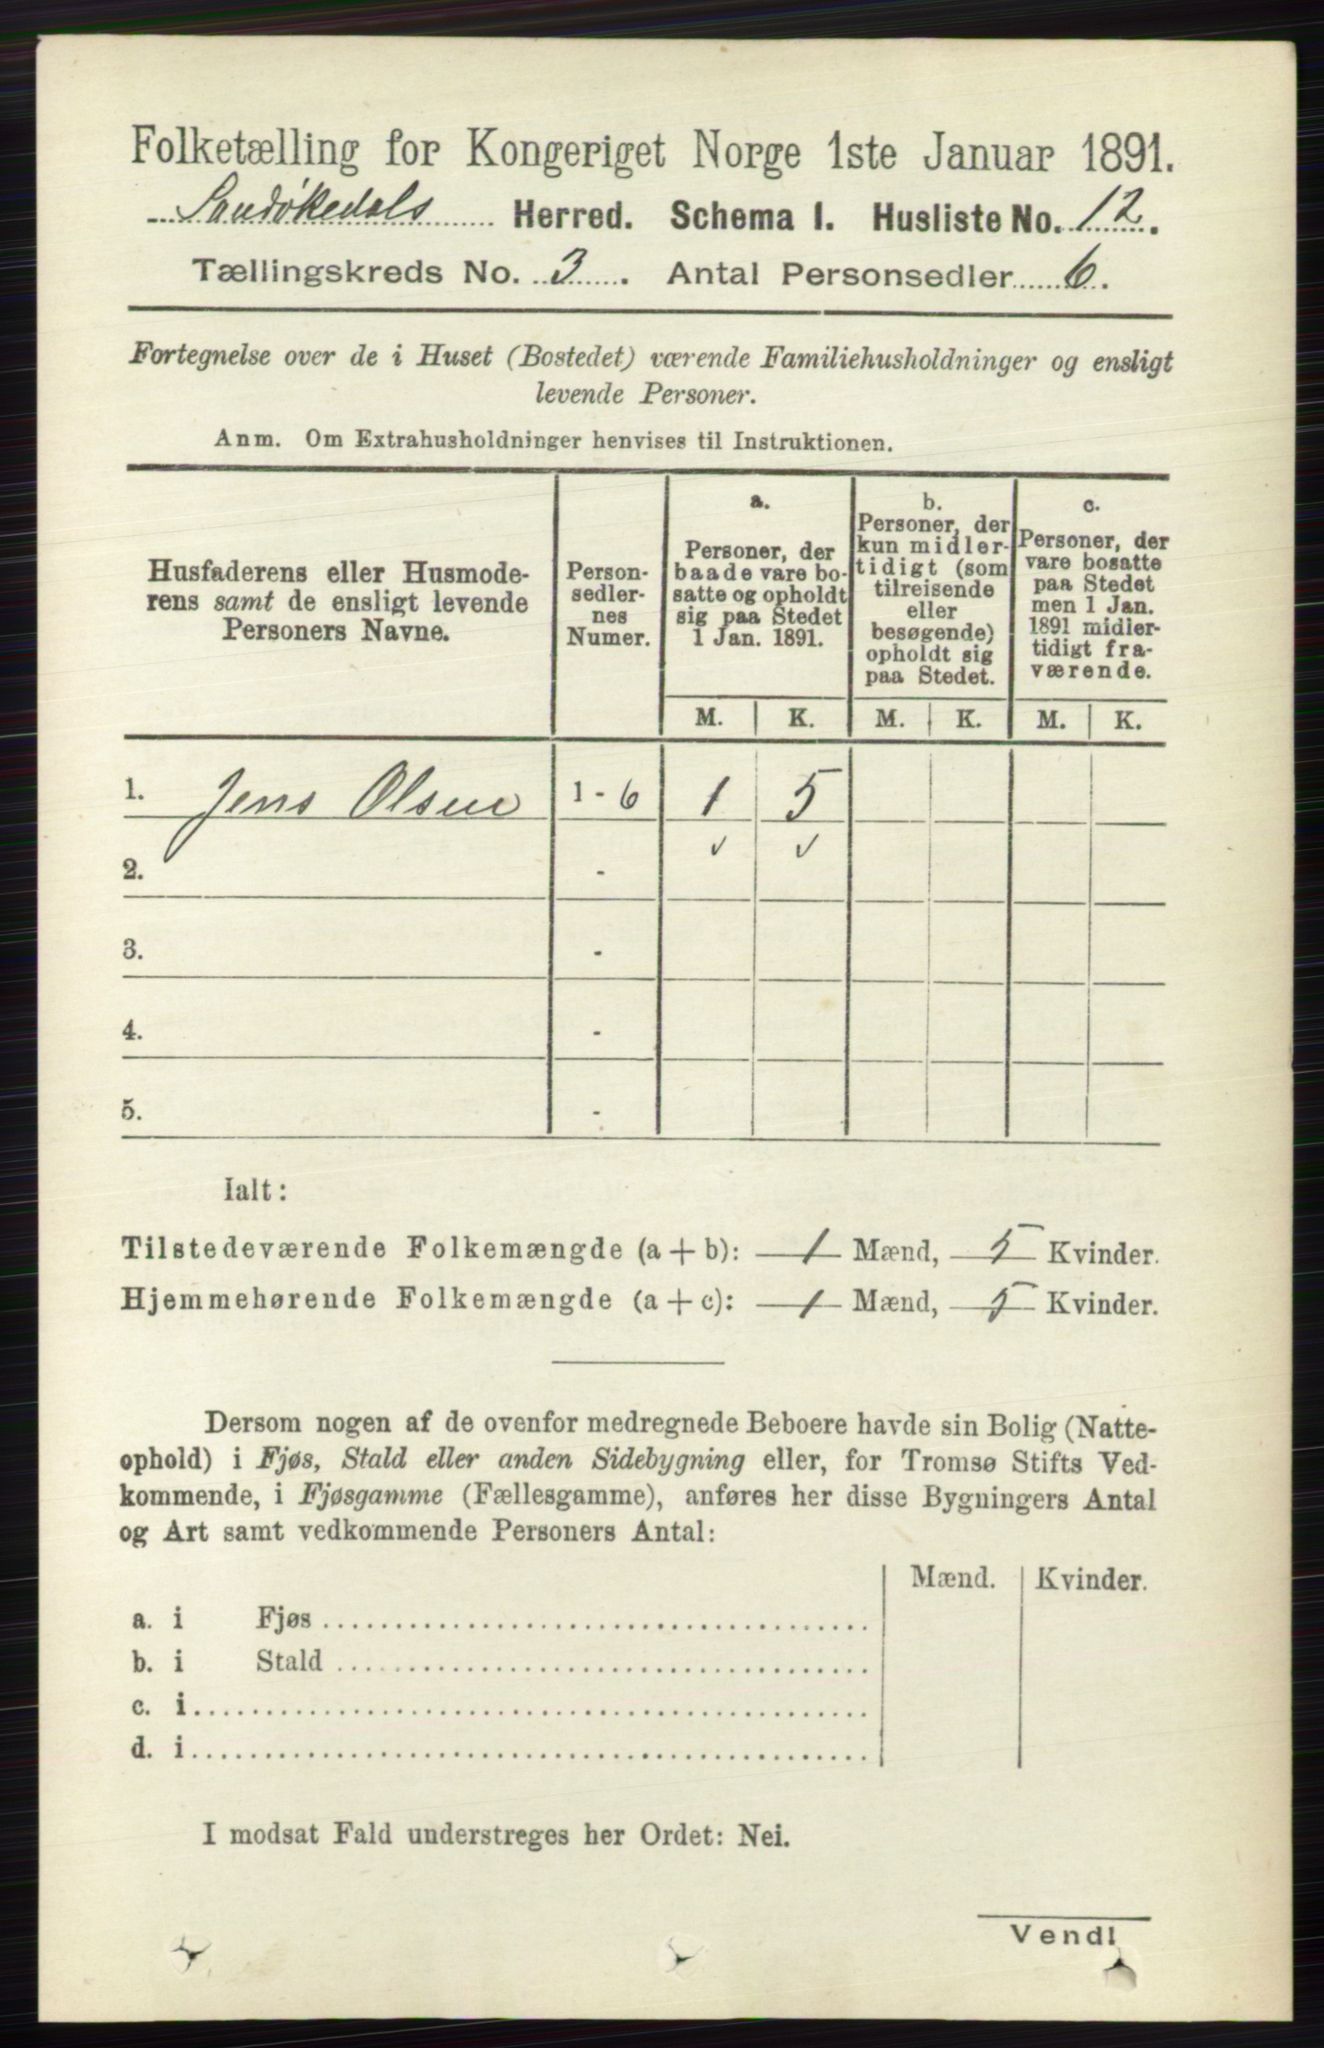 Folketælling for Kongeriget Norge 1ste Januar 1891.
Sandøkedals Herred. Schema 1. Husliste No. 12.
Tællingskreds No. 3. Antal Personsedler 6.
Fortegnelse over de i Huset (Bostedet) værende Familiehusholdninger og ensligt
levende Personer.
Anm. Om Extrahusholdninger henvises til Instruktionen.
Husfaderens eller Husmode-
rens samt de ensligt levende
Personers Navne.
Person-
sedler-
nes
Numer.
a.
Personer, der
baade vare bo-
satte og opholdt
sig paa Stedet
1 Jan. 1891.
b.
Personer, der
kun midler-
tidigt (som
tilreisende
eller
besøgende)
opholdt sig
paa Stedet.
c.
Personer, der
vare bosatte
paa Stedet
men 1 Jan.
1891 midler-
tidigt fra-
værende.
M. K. M. K. M. K.
1. Jens Olsen 1 - 6 1 5
✓ ✓
2. -
3. -
4. -
5. -
Ialt:
Tilstedeværende Folkemængde (a + b): 1 Mænd, 5 Kvinder.
Hjemmehørende Folkemængde (a + c): 1 Mænd, 5 Kvinder.
Dersom nogen af de ovenfor medregnede Beboere havde sin Bolig (Natte-
ophold) i Fjøs, Stald eller anden Sidebygning eller, for Tromsø Stifts Ved-
kommende, i Fjøsgamme (Fællesgamme), anføres her disse Bygningers Antal
og Art samt vedkommende Personers Antal:
Mænd. Kvinder.
a. i Fjøs
b. i Stald
c. i
d. i
I modsat Fald understreges her Ordet: Nei.
Vend!